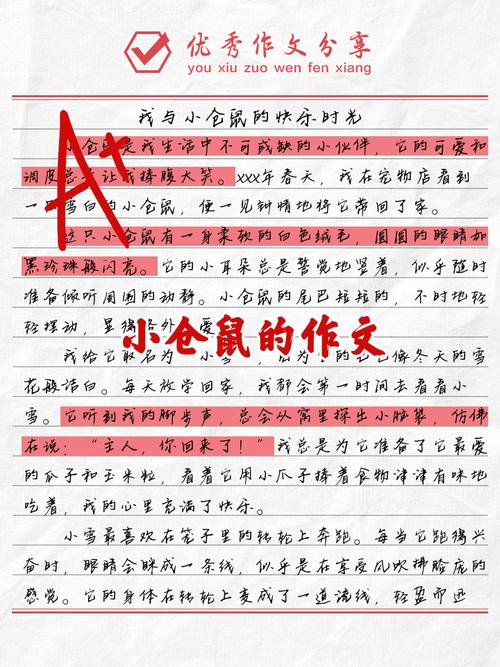 优秀作文分享
you xiu zuo wen fen xiang
我与小仓鼠的快乐时光
A+
小仓鼠是我生活中不可或缺的小伙伴，它的可爱和
调皮总 让我捧腹大笑。xxx年春天，我在宠物店看到
一 雪白的小仓鼠，便一见钟情地将它带回了家。
这只小仓鼠有一身柔软的白色绒毛，圆圆的眼睛如
黑珍珠般闪亮。它的小耳朵总是警觉地竖着，似乎随时
准备倾听周围的动静。小仓鼠的尾巴短短的，不时地轻
轻摆动，显得格外 爱
小仓鼠的作文
我给它取名为 小 像冬天的雪
花般洁白。每天放学回家，我都会第一时间去看看小
雪。它听到我的脚步声，总会从窝里探出小脑袋，仿佛
在说：“主人，你回来了！”我总是为它准备了它最爱
的瓜子和玉米粒，看着它用小爪子捧着食物津津有味地
吃着，我的心里充满了快乐。
小雪最喜欢在笼子里的转轮上奔跑。每当它跑得兴
奋时，眼睛会眯成一条线，似乎是在享受风吹拂脸庞的
感觉。它的身体在转轮上变成了一道流线，轻盈而迅